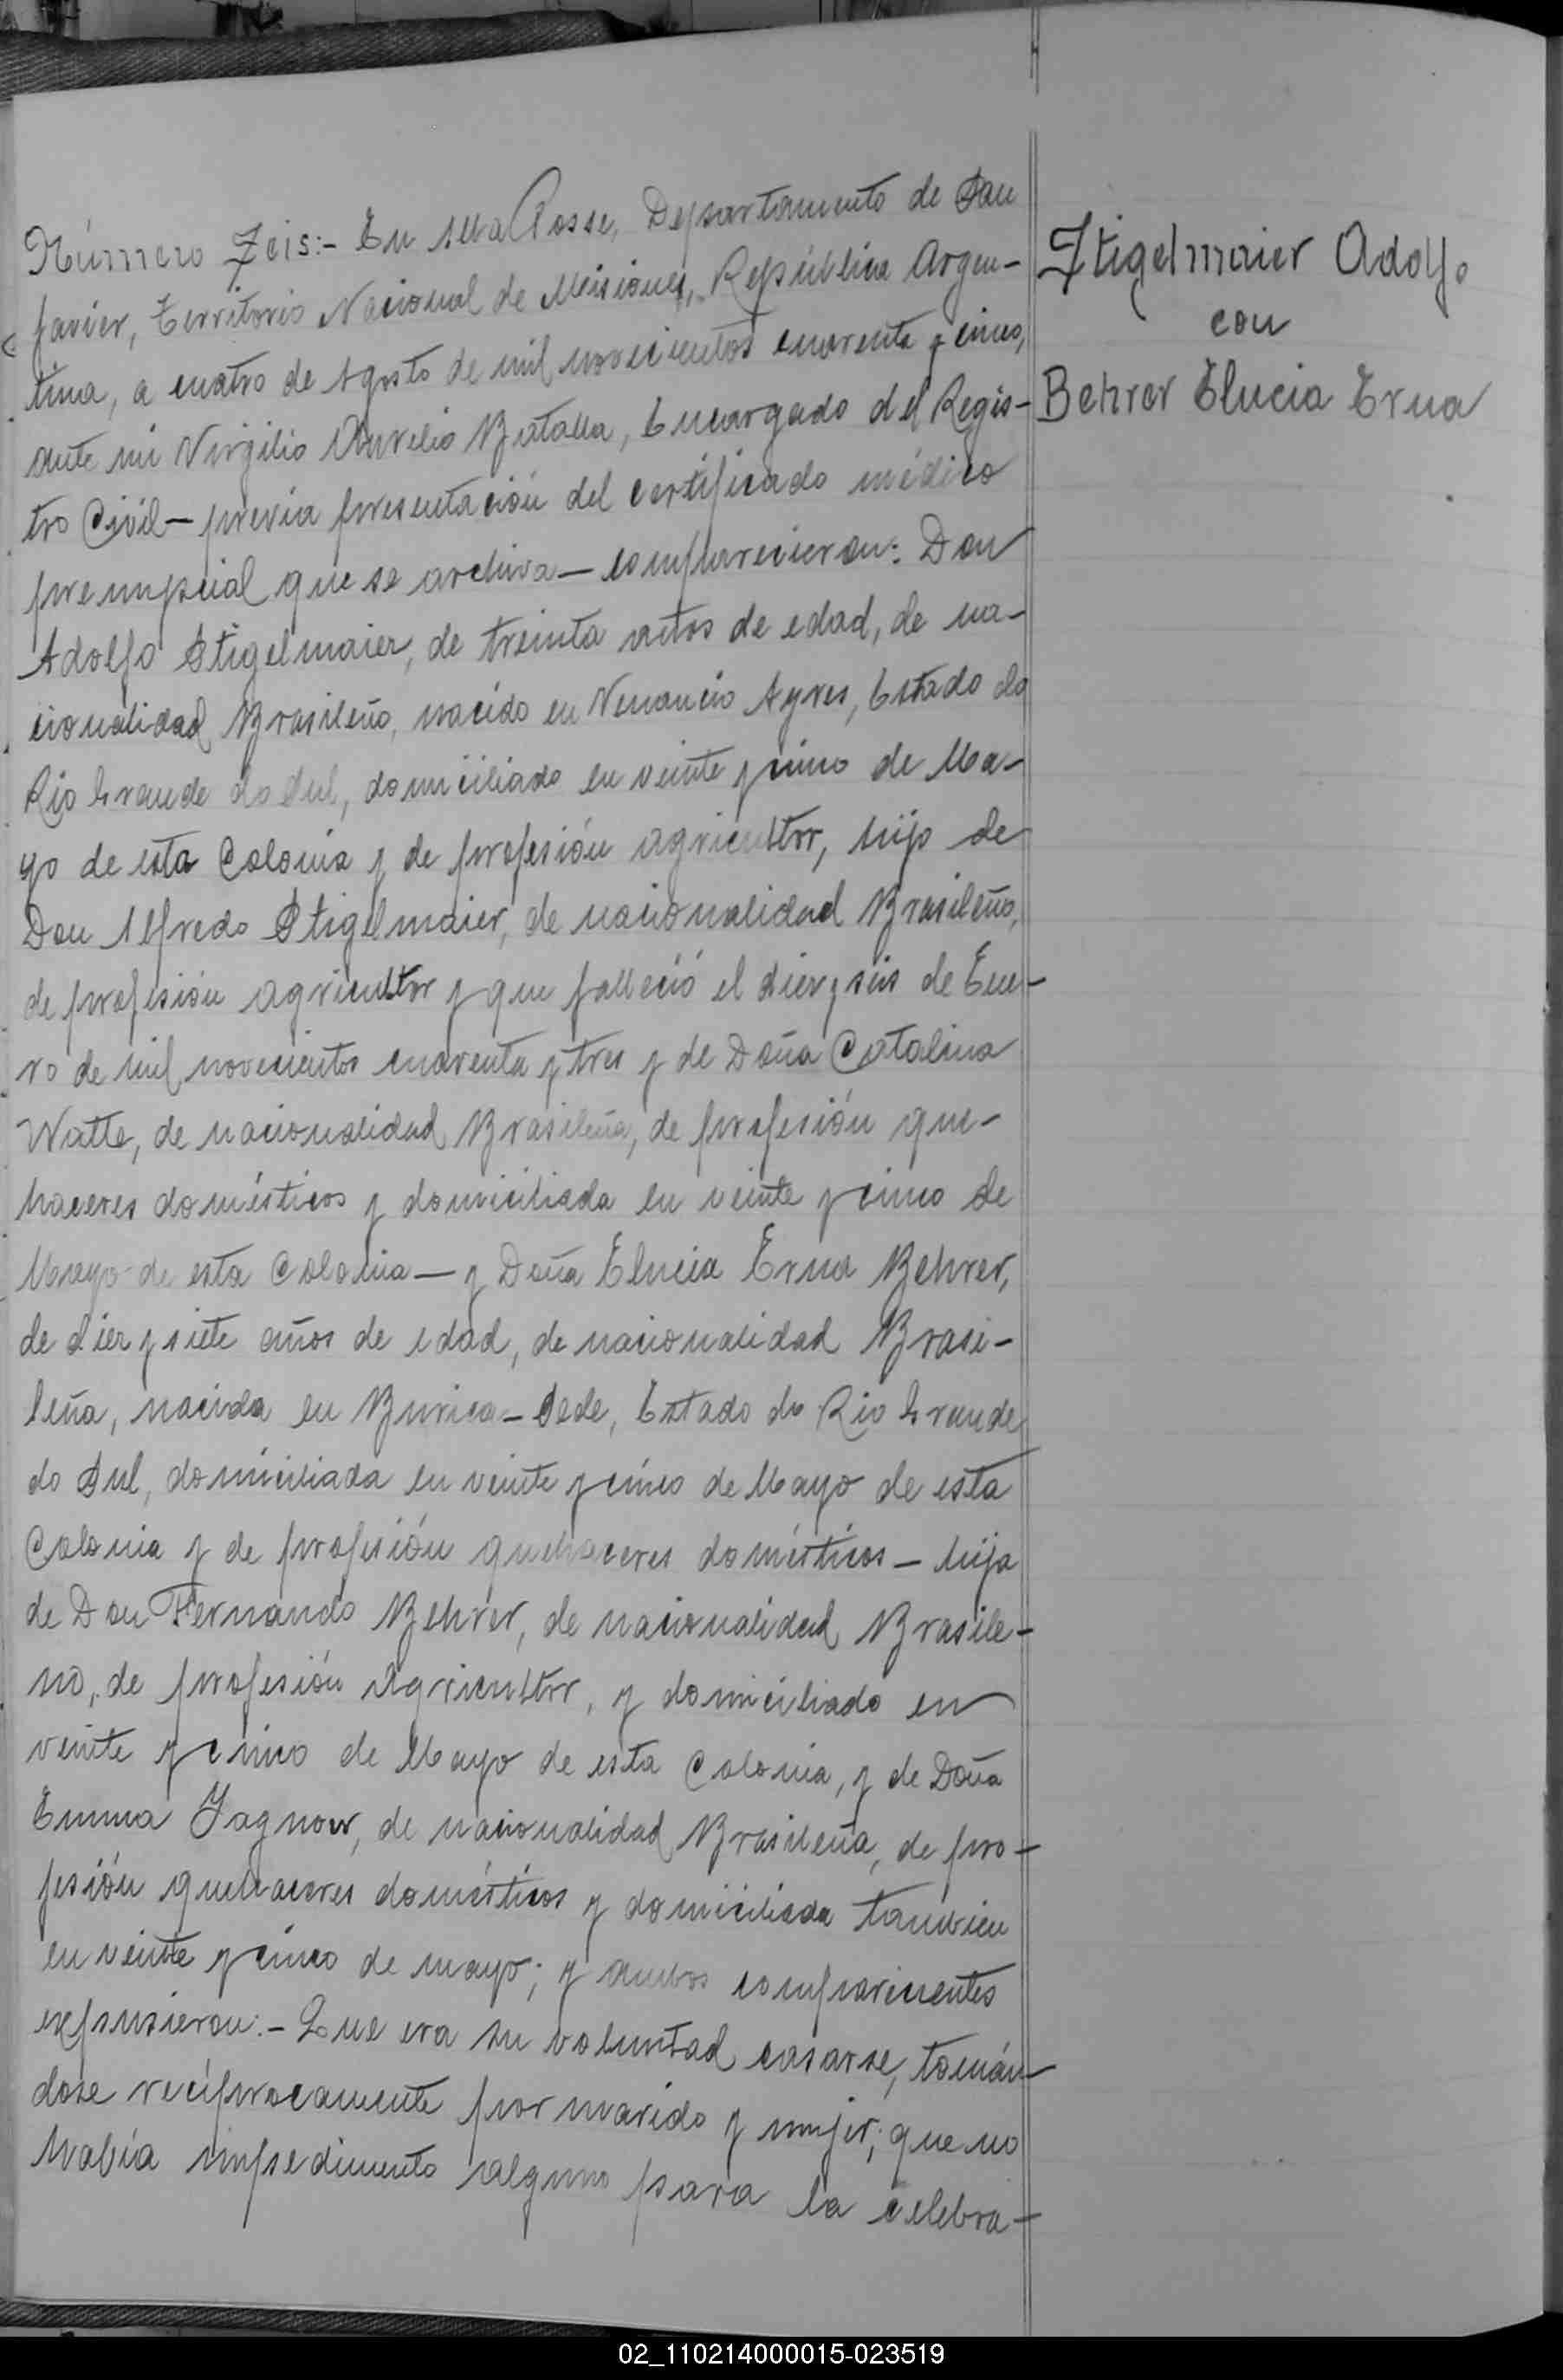 Número Seis:- En Alba Posse, Departamento de San
Javier, Territorio Nacional de Misiones, República Argen-
tina, a cuatro de Agosto de mil novecientos cuarenta y cinco,
ante mi Virgilio Aurelio Batalla, Encargado del Regis-
tro Civil – previa presentación del certificado médico
prenupcial que se archiva – comparecieron: Don
Adolfo Stigelmaier, de treinta años de edad, de na-
cionalidad Brasileño, nacido en Venancio Ayres, Estado do
Rio Grande do Sul, domiciliado en veinte y cinco de Ma-
yo de esta Colonia y de profesión agricultor, hijo de
Don Alfredo Stigelmaier, de nacionalidad Brasileño,
de profesión agricultor y que falleció el diez y seis de Ene-
ro de mil novecientos cuarenta y tres y de Doña Catalina
Watte, de nacionalidad Brasileña, de profesión que-
haceres domésticos y domiciliada en veinte y cinco de
Mayo de esta Colonia – y Doña Elucia Erna Behrer,
de diez y siete años de edad, de nacionalidad Brasi-
leña, nacida en Burica - Sede, Estado do Rio Grande
do Sul, domiciliada en veinte y cinco de Mayo de esta
Colonia y de profesión quehaceres domésticos – hija
de Don Fernando Behrer, de nacionalidad Brasile-
no, de profesión Agricultor, y domiciliado en
veinte y cinco de Mayo de esta Colonia, y de Doña
Emma Jagnow, de nacionalidad Brasileña, de pro-
fesión quehaceres domésticos y domiciliada tambien
en veinte y cinco de mayo; y ambos comparecientes
expusieron:- Que era su voluntad casarse, tomán-
dose recíprocamente por marido y mujer; que no
había impedimento alguno para la celebra-
Stigelmaier Adolfo
con
Behrer Elucia Erna
02_110214000015-023519